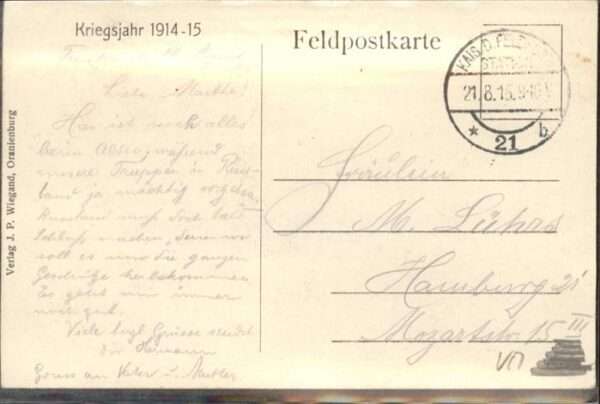 Kriegsjahr 1914-15
Feldpostkarte
KAIS. D. FELD
STATION
21.8.15. 9-10 V
* 21 b
Verlag J. P. Wiegand, Oranienburg
Liebe Marthe!
Hier ist noch alles
beim Alten, während
unsere Truppen in Russ-
land ja mächtig
Russland muß doch bald
Schluß machen, denn wo
soll es nur die ganzen
herbekommen
Es geht mir immer
noch gut.
Viele herzl Grüsse sendet
Dir Hermann
Gruss an Vater u. Mutter
Fräulein
M. Lührs
Hamburg 21
Mozartstr. 15 III